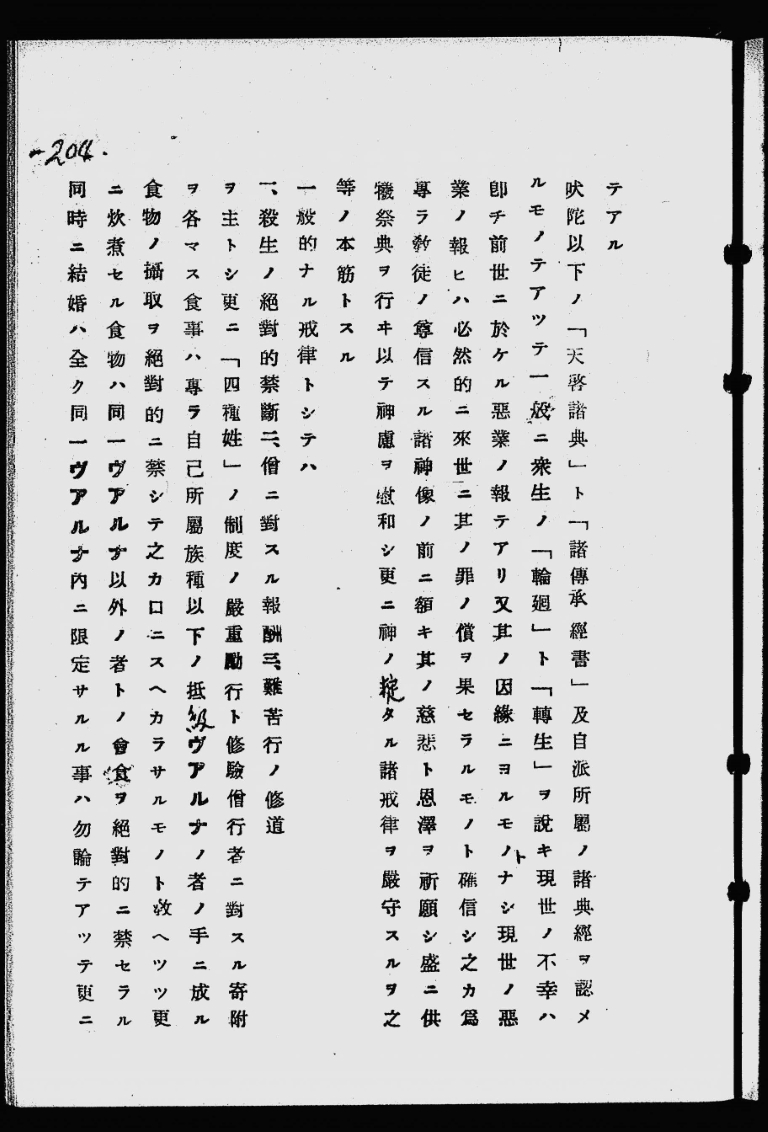 テアル
吠陀以下ノ「天啓諸典」ト「諸傳承經書」及自派所屬ノ諸典經ヲ認メ
ルモノテアツテ一般ニ衆生ノ「輪廻」ト「轉生」ヲ說キ現世ノ不幸ハ
卽チ前世ニ於ケル惡業ノ報テアリ又其ノ因緣ニヨルモノトナシ現世ノ惡
業ノ報ヒハ必然的ニ來世ニ其ノ罪ノ償ヲ果セラルモノト確信シ之カ爲
專ラ敎徒ノ尊信スル諸神像ノ前ニ額キ其ノ慈悲ト恩澤ヲ祈願シ盛ニ供
犧祭典ヲ行ヰ以テ神慮ヲ慰和シ更ニ神ノ掟タル諸戒律ヲ嚴守スルヲ之
等ノ本筋トスル
一般的ナル戒律トシテハ
一、殺生ノ絕對的禁斷二、僧ニ對スル報酬三、難苦行ノ修道
ヲ主トシ更ニ「四種姓」ノ制度ノ嚴重勵行ト修驗僧行者ニ對スル寄附
ヲ各マス食事ハ專ラ自己所屬族種以下ノ抵級ヴアルナノ者ノ手ニ成ル
食物ノ攝取ヲ絕對的ニ禁シテ之カ口ニスヘカラサルモノト敎ヘツツ更
ニ炊煮セル食物ハ同一ヴアルナ以外ノ者トノ會食ヲ絕對的ニ禁セラル
同時ニ結婚ハ全ク同一ヴアルナ內ニ限定サルル事ハ勿論テアツテ更ニ
-204.